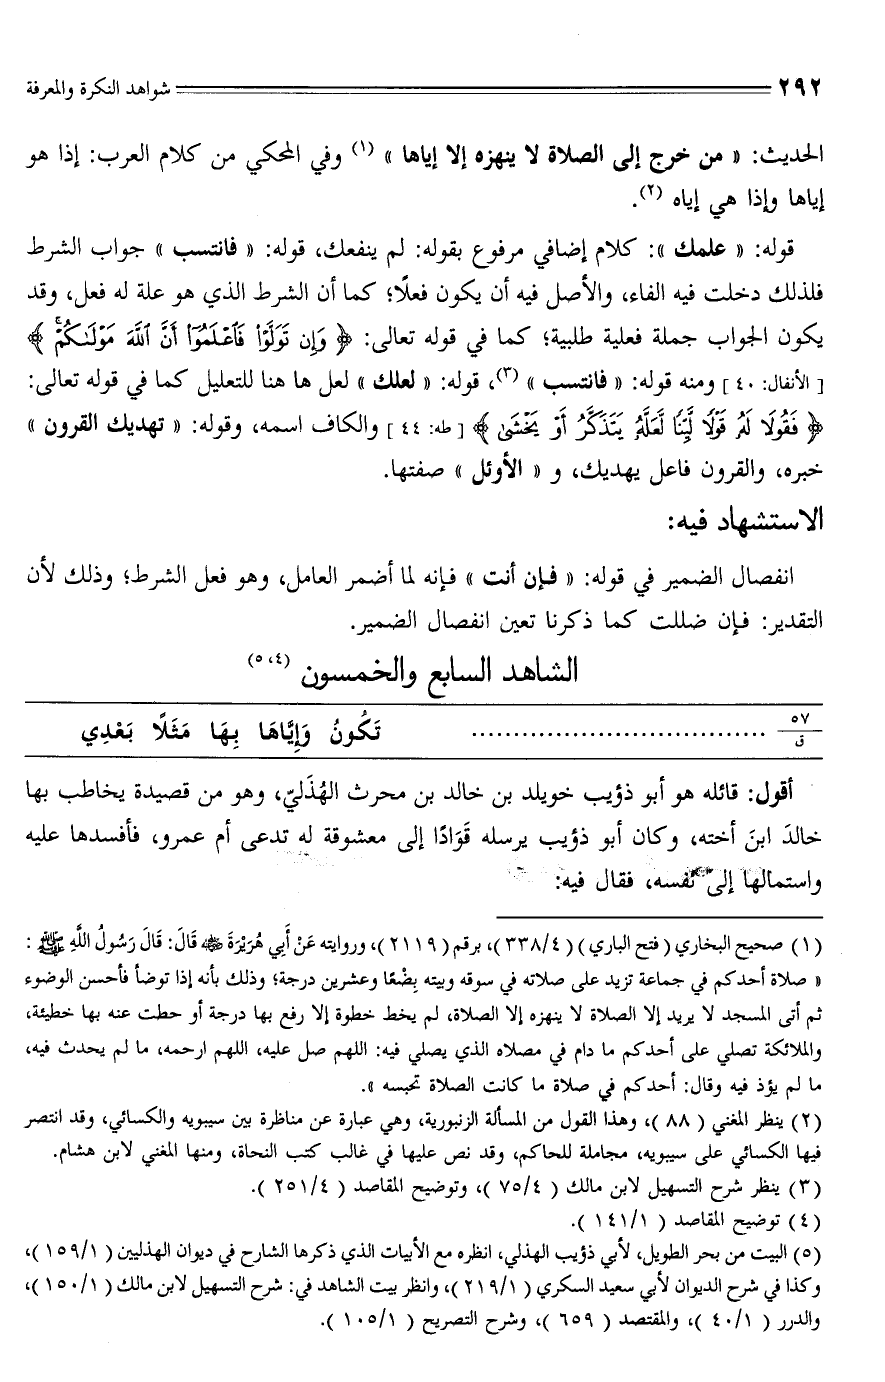 ٢٩٢ شواهد النكرة والمعرفة
الحديث: « من خرج إلى الصلاة لا ينهزه إلا إياها » (١) وفي المحكي من كلام العرب: إذا هو
إياها وإذا هي إياه (٢).
قوله: « علمك »: كلام إضافي مرفوع بقوله: لم ينفعك، قوله: « فانتسب » جواب الشرط
فلذلك دخلت فيه الفاء، والأصل فيه أن يكون فعلًا؛ كما أن الشرط الذي هو علة له فعل، وقد
يكون الجواب جملة فعلية طلبية؛ كما في قوله تعالى: ﴿ وَإِن تَوَلَّوْاْ فَاعْلَمُوٓاْ أَنَّ ٱللَّهَ مَوْلَىٰكُمْۚ ﴾
[ الأنفال: ٤٠ ] ومنه قوله: « فانتسب » (٣)، قوله: « لعلك » لعل ها هنا للتعليل كما في قوله تعالى:
﴿ فَقُولَا لَهُۥ قَوْلًا لَّيِّنًا لَّعَلَّهُۥ يَتَذَكَّرُ أَوْ يَخْشَىٰ ﴾ [ طه: ٤٤ ] والكاف اسمه، وقوله: « تهديك القرون »
خبره، والقرون فاعل يهديك، و « الأوئل » صفتها.
الاستشهاد فيه:
انفصال الضمير في قوله: « فإن أنت » فإنه لما أضمر العامل، وهو فعل الشرط؛ وذلك لأن
التقدير: فإن ضللت كما ذكرنا تعين انفصال الضمير.
الشاهد السابع والخمسون (٤، ٥)
٥٧
ق ................................. تَكُونُ وَإِيَّاهَا بِهَا مَثَلًا بَعْدِي
أقول: قائله هو أبو ذؤيب خويلد بن خالد بن محرث الهُذَليّ، وهو من قصيدة يخاطب بها
خالدَ ابنَ أخته، وكان أبو ذؤيب يرسله قَوَّادًا إلى معشوقة له تدعى أم عمرو، فأفسدها عليه
واستمالها إلى نفسه، فقال فيه:
(١) صحيح البخاري ( فتح الباري ) ( ٣٣٨/٤ )، برقم ( ٢١١٩ )، وروايته عَنْ أَبِي هُرَيْرَةَ ﷺ قَالَ: قَالَ رَسُولُ اللَّهِ ﷺ :
« صلاة أحدكم في جماعة تزيد على صلاته في سوقه وبيته بِضْعًا وعشرين درجة؛ وذلك بأنه إذا توضأ فأحسن الوضوء
ثم أتى المسجد لا يريد إلا الصلاة لا ينهزه إلا الصلاة، لم يخط خطوة إلا رفع بها درجة أو حطت عنه بها خطيئة،
والملائكة تصلي على أحدكم ما دام في مصلاه الذي يصلي فيه: اللهم صل عليه، اللهم ارحمه، ما لم يحدث فيه،
ما لم يؤذ فيه وقال: أحدكم في صلاة ما كانت الصلاة تحبسه ».
(٢) ينظر المغني ( ٨٨ )، وهذا القول من المسألة الزنبورية، وهي عبارة عن مناظرة بين سيبويه والكسائي، وقد انتصر
فيها الكسائي على سيبويه، مجاملة للحاكم، وقد نص عليها في غالب كتب النحاة، ومنها المغني لابن هشام.
(٣) ينظر شرح التسهيل لابن مالك ( ٧٥/٤ )، وتوضيح المقاصد ( ٢٥١/٤ ).
(٤) توضيح المقاصد ( ١٤١/١ ).
(٥) البيت من بحر الطويل، لأبي ذؤيب الهذلي، انظره مع الأبيات الذي ذكرها الشارح في ديوان الهذليين ( ١٥٩/١ )،
وكذا في شرح الديوان لأبي سعيد السكري ( ٢١٩/١ )، وانظر بيت الشاهد في: شرح التسهيل لابن مالك ( ١٥٠/١ )،
والدرر ( ٤٠/١ )، والمقتصد ( ٦٥٩ )، وشرح التصريح ( ١٠٥/١ ).